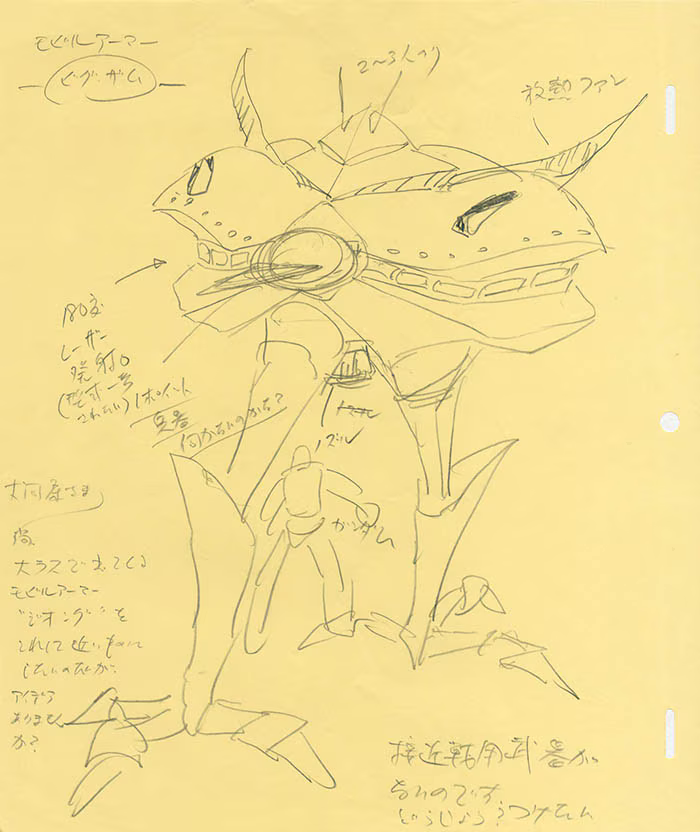 モビルアーマー
ビグ・ザム
2〜3人のり
放熱ファン
180度
レーザー
発射口
1ポイント
何かないのかな?
ノズル
ガンダム
大河原さま
尚
大ラスで出てくる
モビルアーマー
"ジオング"を
これに近いものに
したいのだが、
アイデア
ありません
か?
接近戦用武器が
ないのです
どうしよう?